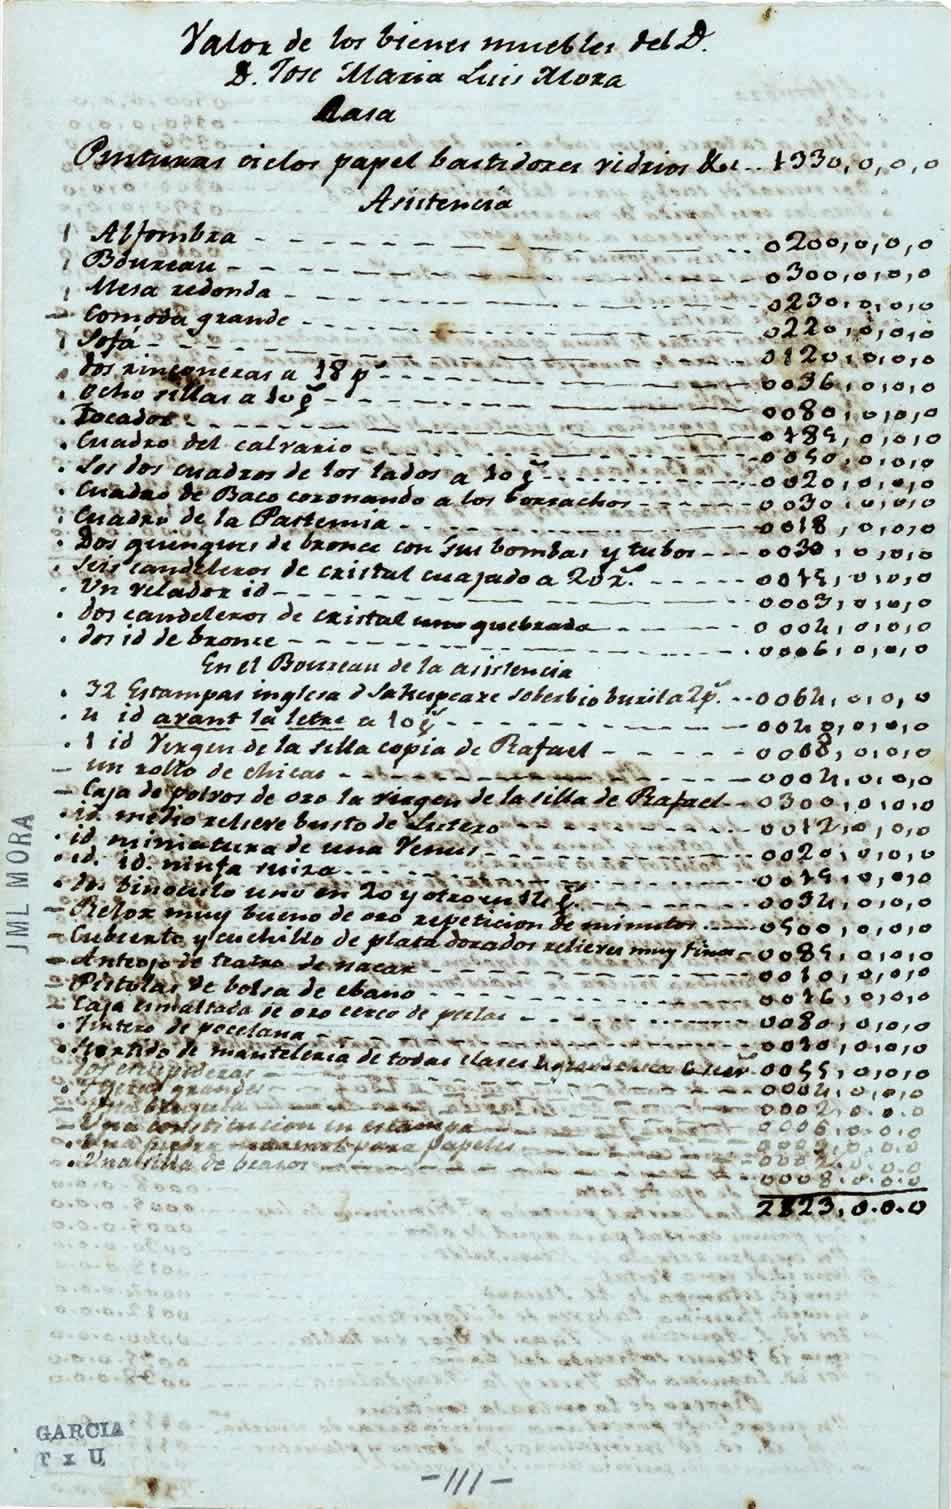 Valor de los bienes muebles del D.
D. Jose Maria Luis Mora
Casa
Pinturas cielos papel bastidores vidrios &a .. 1330,0,0,0
Asistencia
1 Alfombra - - - 0200,0,0,0
1 Boureau - - - 0300,0,0,0
1 Mesa redonda - - - 0230,0,0,0
- Comoda grande - - - 0220,0,0,0
1 Sofá - - - 0120,0,0,0
dos rinconeras a 18 p.s - - - 0036,0,0,0
ocho sillas a 10 p.s - - - 0080,0,0,0
. Tocador - - - 0185,0,0,0
. Cuadro del calvario - - - 0050,0,0,0
. Los dos cuadros de los lados a 10 p.s - - - 0020,0,0,0
. Cuadro de Baco coronando a los borrachos - - - 0030,0,0,0
. Cuadro de la - - - 0018,0,0,0
. Dos quinques de bronce con sus bombas y tubos - - - 0030,0,0,0
. Seis candeleros de cristal cuajado a 20 r.s - - - 0015,0,0,0
. Un velador id - - - 0003,0,0,0
. dos candeleros de cristal uno quebrado - - - 0004,0,0,0
. dos id de bronce - - - 0006,0,0,0
En el Boureau de la asistencia
. 32 Estampas inglesa d Sakupeare soberbio buril a 2 p.s - - 0064,0,0,0
. 4 id avant la letre a 10 p.s - - - 0040,0,0,0
. 1 id Virgen de la silla copia de Rafael - - - 0008,0,0,0
- un rollo de chicas - - - 0004,0,0,0
- Caja de polvos de oro la virgen de la silla de Rafael - - 0300,0,0,0
. id. medio relieve busto de Lutero - - - 0012,0,0,0
. id miniatura de una Venus - - - 0020,0,0,0
. id. id. ninfa suiza - - - 0015,0,0,0
. dos binoculo uno en 20 y otro en 14 p.s - - - 0034,0,0,0
- Relox muy bueno de oro repeticion de minutos - - - 0500,0,0,0
- Cubierto y cuchillo de plata dorados relieves muy finos - 0085,0,0,0
- Anteojo de teatro de nacar - - - 0010,0,0,0
- Pistolas de bolsa de ebano - - - 0016,0,0,0
- Caja esmaltada de oro cerco de perlas - - - 0080,0,0,0
. Tintero de pocelana - - - 0030,0,0,0
. Surtido de manteleria de todas clases 0055,0,0,0
dos escupideras - - - 0004,0,0,0
. Tijeras grandes - - - 0002,0,0,0
- Una brujula - - - 0006,0,0,0
- Una constitucion en estampa - - -
. Una piedra para papeles - - -
. Una silla de brazos - - - 0008,0,0,0
2823,0.0.0
JML MORA
GARCIA
r x U
-111-